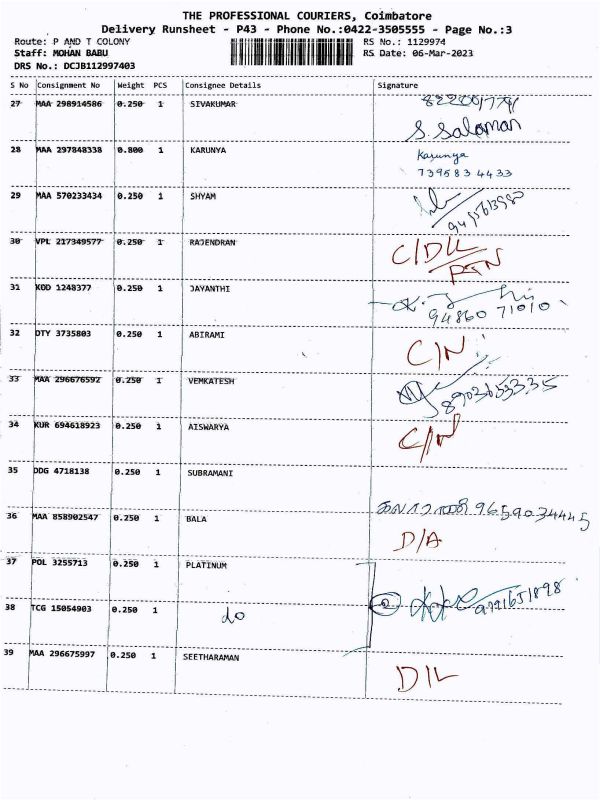 THE PROFESSIONAL COURIERS, Coimbatore
Delivery Runsheet - P43 - Phone No.:0422-3505555 - Page No.:3
Route: P AND T COLONY RS No.: 1129974
Staff: MOHAN BABU RS Date: 06-Mar-2023
DRS No.: DCJB112997403
S No Consignment No Weight PCS Consignee Details Signature
27 MAA 298914586 0.250 1 SIVAKUMAR
S. Salaman
28 MAA 297848338 0.800 1 KARUNYA Karunya
739583 4433
29 MAA 570233434 0.250 1 SHYAM
30 VPL 217349577 0.250 1 RAJENDRAN C/DL
RTN
31 KOD 1248377 0.250 1 JAYANTHI
94860 71010
32 DTY 3735803 0.250 1 ABIRAMI C/N
33 MAA 296676592 0.250 1 VEMKATESH
34 KUR 694618923 0.250 1 AISWARYA C/N
35 DDG 4718138 0.250 1 SUBRAMANI
36 MAA 858902547 0.250 1 BALA 9659034445
D/A
37 POL 3255713 0.250 1 PLATINUM
38 TCG 15054903 0.250 1 do
39 MAA 296675997 0.250 1 SEETHARAMAN D/L